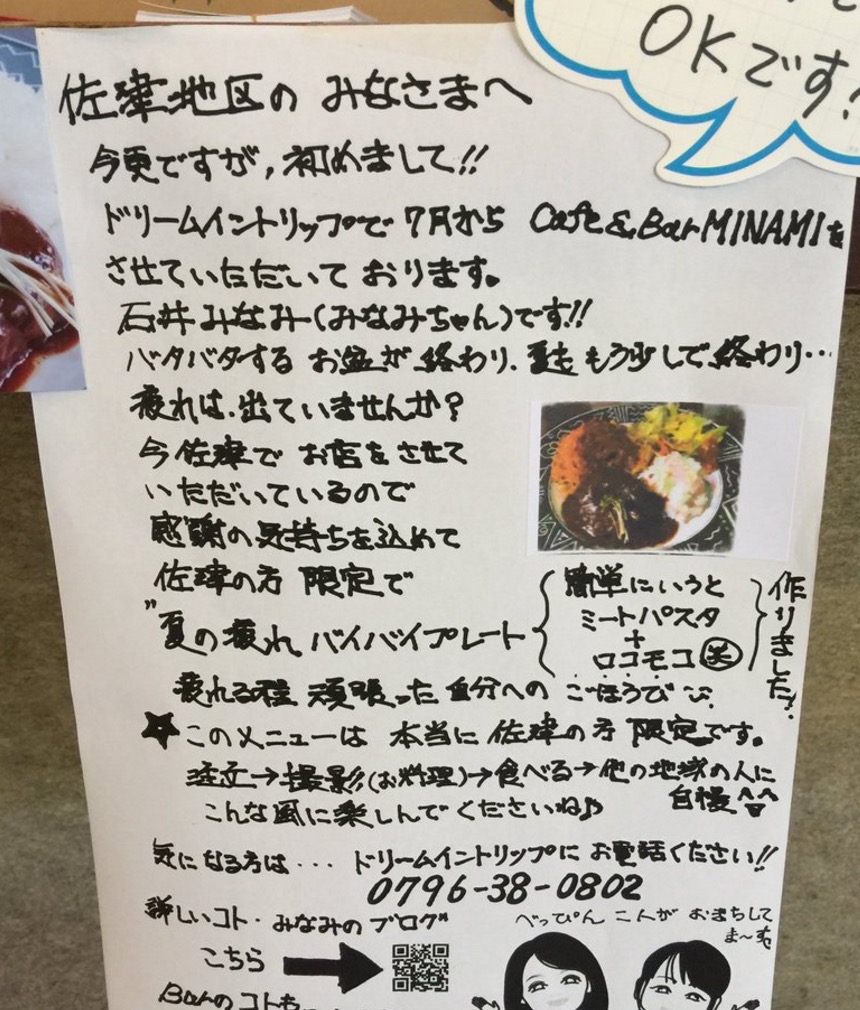 OKです?
佐津地区の みなさまへ
今更ですが,初めまして!!
ドリームイントリップで 7月から Cafe & Bar MINAMIを
させていただいて おります。
石井みなみ(みなみちゃん)です!!
バタバタする お盆が 終わり、夏も もう少しで 終わり…
疲れは、出ていませんか?
今 佐津で お店を させて
いただいているので
感謝の気持ちを込めて
佐津の方 限定で
"夏の疲れ バイバイプレート
簡単にいうと
ミートパスタ
+
ロコモコ 笑
作りました!
疲れる程 頑張った 自分への ごほうび
★このメニューは 本当に 佐津の方 限定です。
注文→撮影(お料理)→食べる→他の地域の人に
自慢^^
こんな風に楽しんでくださいね♪
気になる方は... ドリームイントリップに お電話ください!!
0796-38-0802
詳しいコト・みなみのブログ
こちら
べっぴん こんが おまちして
ま〜す
Barのコトも